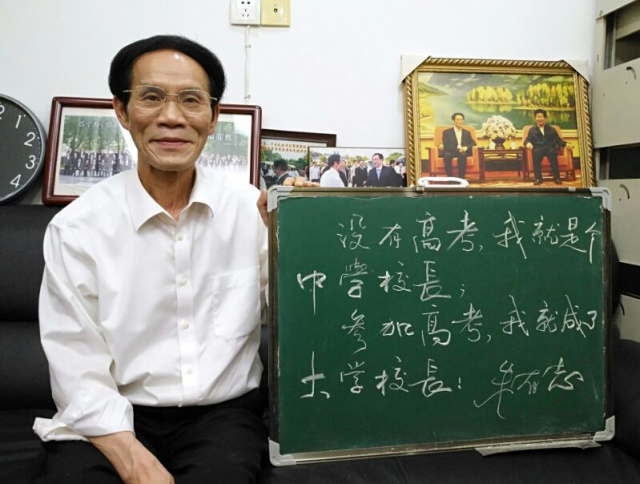 没有高考，我就是个
中學校長；
参加高考，我就成了
大学校長！ 朱有志